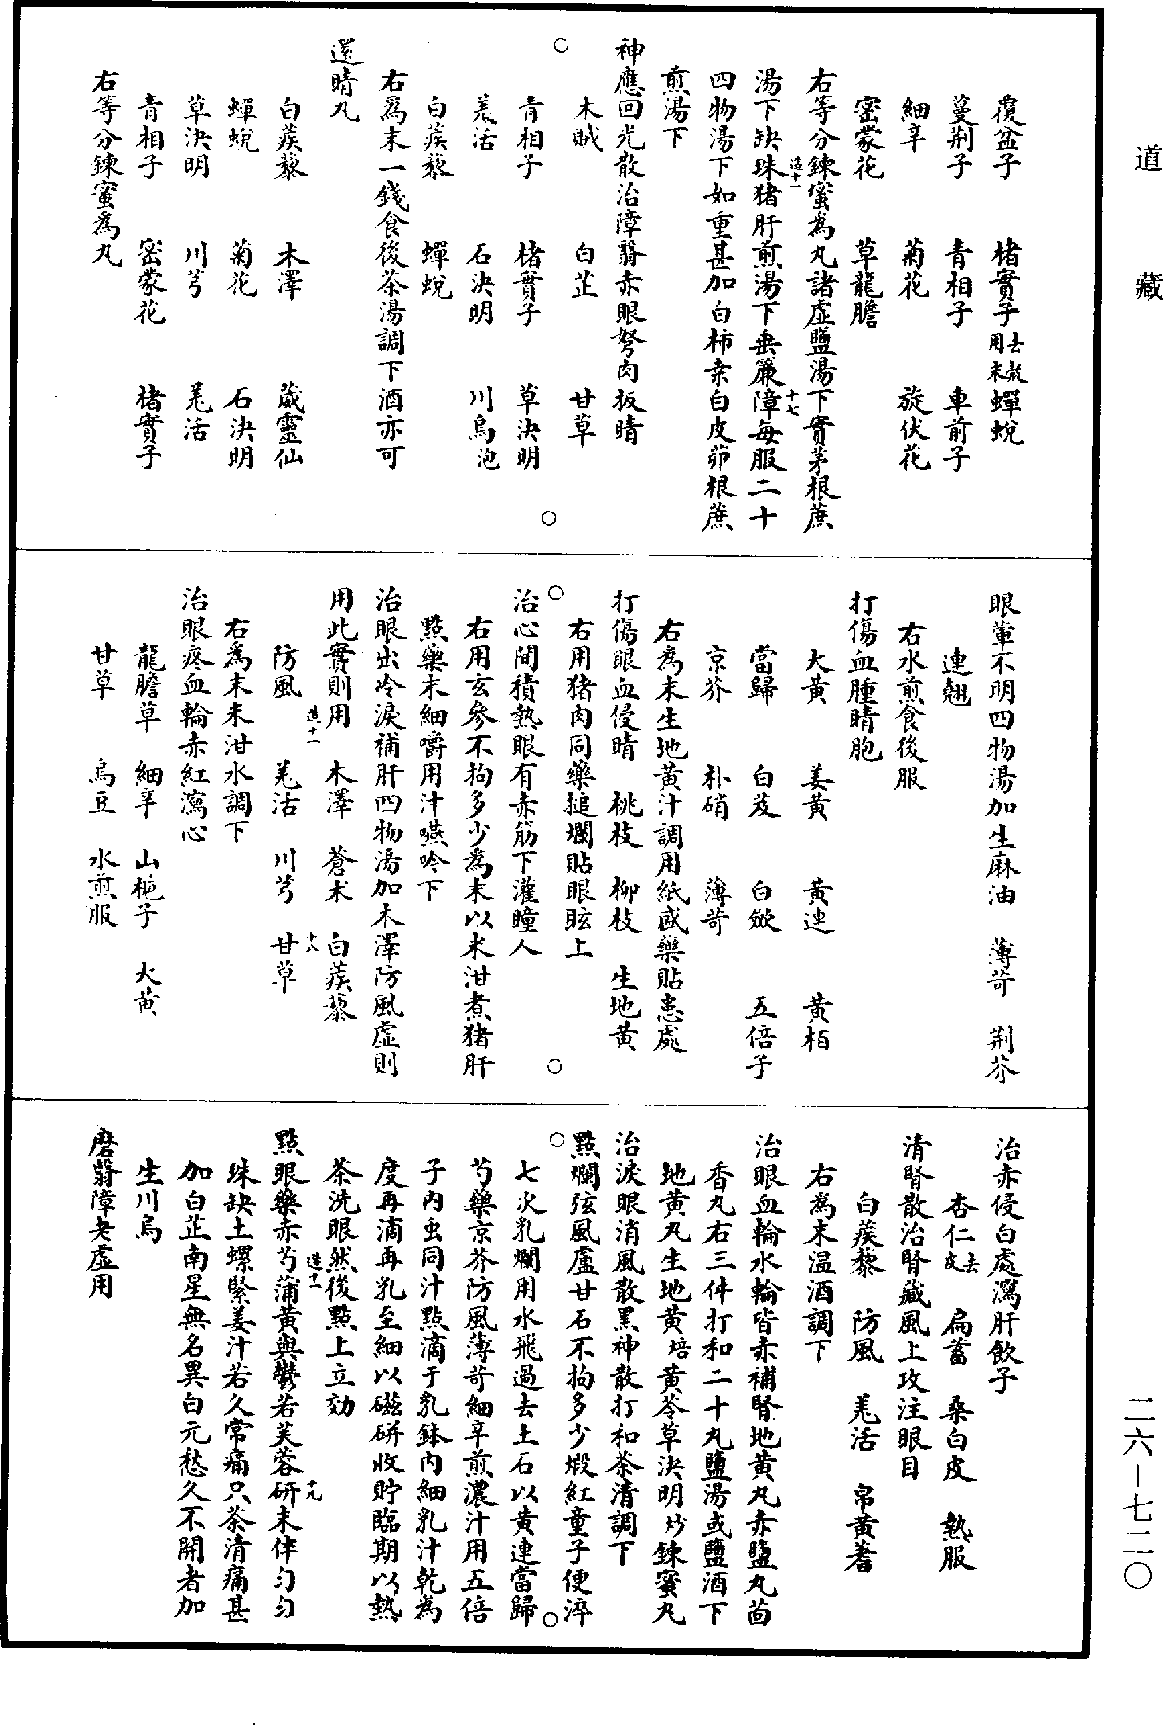 道藏
覆盆子　楮實子去殼用末　蟬蛻
蔓荆子　青相子　車前子
細辛　菊花　旋伏花
密蒙花　草龍膽
右等分鍊蜜為丸諸虛鹽湯下實茅根蔗
湯下缺珠猪肝煎湯下垂簾障每服二十
四物湯下如重甚加白柿桒白皮茆根蔗
煎湯下
神應回光散治障翳赤眼弩肉扳睛
木賊　白芷　甘草
青相子　楮實子　草決明
羌活　石決明　川烏泡
白蒺藜　蟬蛻
右為末一錢食後茶湯調下酒亦可
還睛丸
白蒺藜　木澤　葳靈仙
蟬蛻　菊花　石決明
草決明　川芎　羌活
青相子　密蒙花　楮實子
右等分鍊蜜為丸
眼暈不明四物湯加生麻油　薄苛　荆芥
連翹
右水煎食後服
打傷血腫睛胞
大黃　姜黃　黃連　黃栢
當歸　白芨　白斂　五倍子
京芥　朴硝　薄苛
右為末生地黃汁調用紙盛藥貼患處
打傷眼血侵睛　桃枝　柳枝　生地黃
右用猪肉同藥搥爛貼眼眩上
治心間積熱眼有赤筋下灌瞳人
右用玄參不拘多少為末以米泔煮猪肝
點藥末細嚼用汁嚥吟下
治眼出冷淚補肝四物湯加木澤防風虛則
用此實則用　木澤　蒼术　白蒺藜
防風　羌活　川芎　甘草
右為末米泔水調下
治眼疼血輪赤紅瀉心
龍膽草　細辛　山梔子　大黃
甘草　烏豆　水煎服
治赤侵白處瀉肝飲子
杏仁去皮　扁蓄　桑白皮　熱服
清腎散治腎藏風上攻注眼目
白蒺藜　防風　羌活　帛黃蓍
右為末温酒調下
治眼血輪水輪皆赤補腎地黃丸赤鹽丸茴
香丸右三件打和二十丸鹽湯或鹽酒下
地黃丸生地黃焙黃芩草決明炒鍊蜜丸
治淚眼消風散黑神散打和茶清調下
點爛弦風廬甘石不拘多少煅紅童子便淬
七次乳爛用水飛過去土石以黃連當歸
芍藥京芥防風薄苛細辛煎濃汁用五倍
子內虫同汁點滴于乳鉢內細乳汁乾為
度再滴再乳至細以磁硏收貯臨期以熱
茶洗眼然後點上立効
點眼藥赤芍蒲黃與鬱若芙蓉硏末伴勻勻
珠缺土螺緊姜汁若久常痛只茶清痛甚
加白芷南星無名異白元愁久不開者加
生川烏
磨翳障老虛用
二六—七二〇